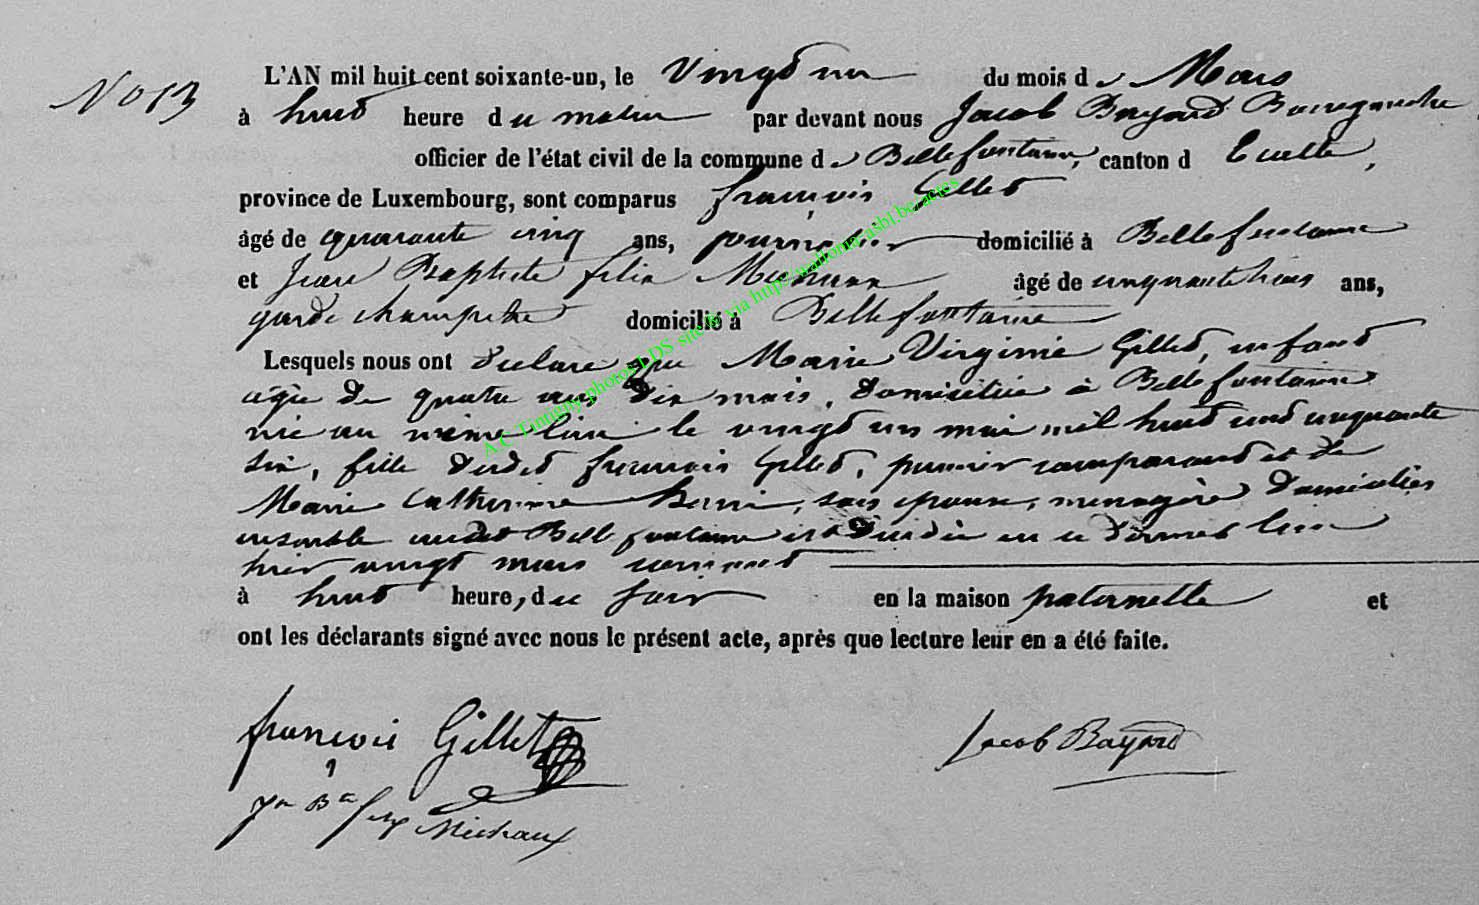 No 13
L'AN mil huit cent soixante-un, le Vingt un du mois de Mars
à huit heure du matin par devant nous Jacob Bayard Bourgmestre
officier de l'état civil de la commune de Bellefontaine, canton d' Etalle,
province de Luxembourg, sont comparus françois Gillet
âgé de quarante cinq ans, journalier domicilié à Bellefontaine
et Jean Baptiste félix Michaux âgé de cinquante trois ans,
garde champetre domicilié à Bellefontaine
Lesquels nous ont déclaré que Marie Virginie Gillet, enfant
agée de quatre ans dix mois, domiciliée à Bellefontaine
née au même lieu le vingt un mai mil huit cent cinquante
six, fille dudit françois Gillet, premier comparant et de
Marie Catherine son épouse, menagère domiciliés
ensemble audit Bellefontaine est décédée en ce dernier lieu
hier vingt mars courant
à huit heure, du soir en la maison paternelle et
ont les déclarants signé avec nous le présent acte, après que lecture leur en a été faite.
françois Gillet
Jacob Bayard
Jn Bte felix Michaux
A.C. Tintigny photos LDS site via http://wallonia-asbl.be/actes